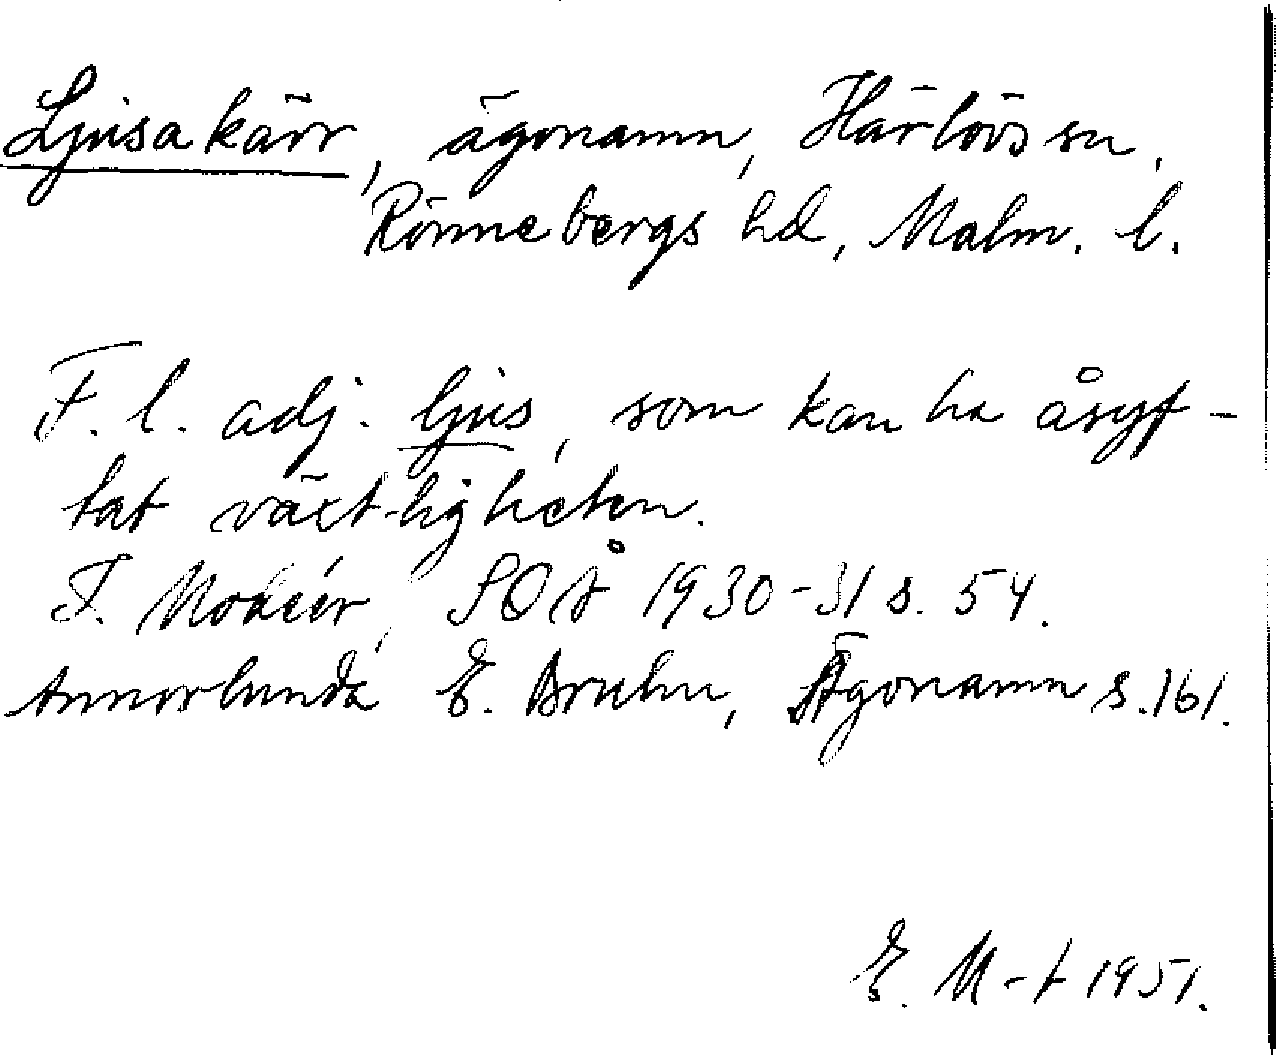 Ljusakärr, ägonamn, Härlövs sn,
Rönnebergs hd, Malm. l.
F. l. adj. ljus, som kan ha åsyf-
tat växtligheten.
I. Modéer, SOÅ 1930-31 s. 54.
Annorlunda E. Bruhn, Ägonamn s. 161.
E. M-t 1951.